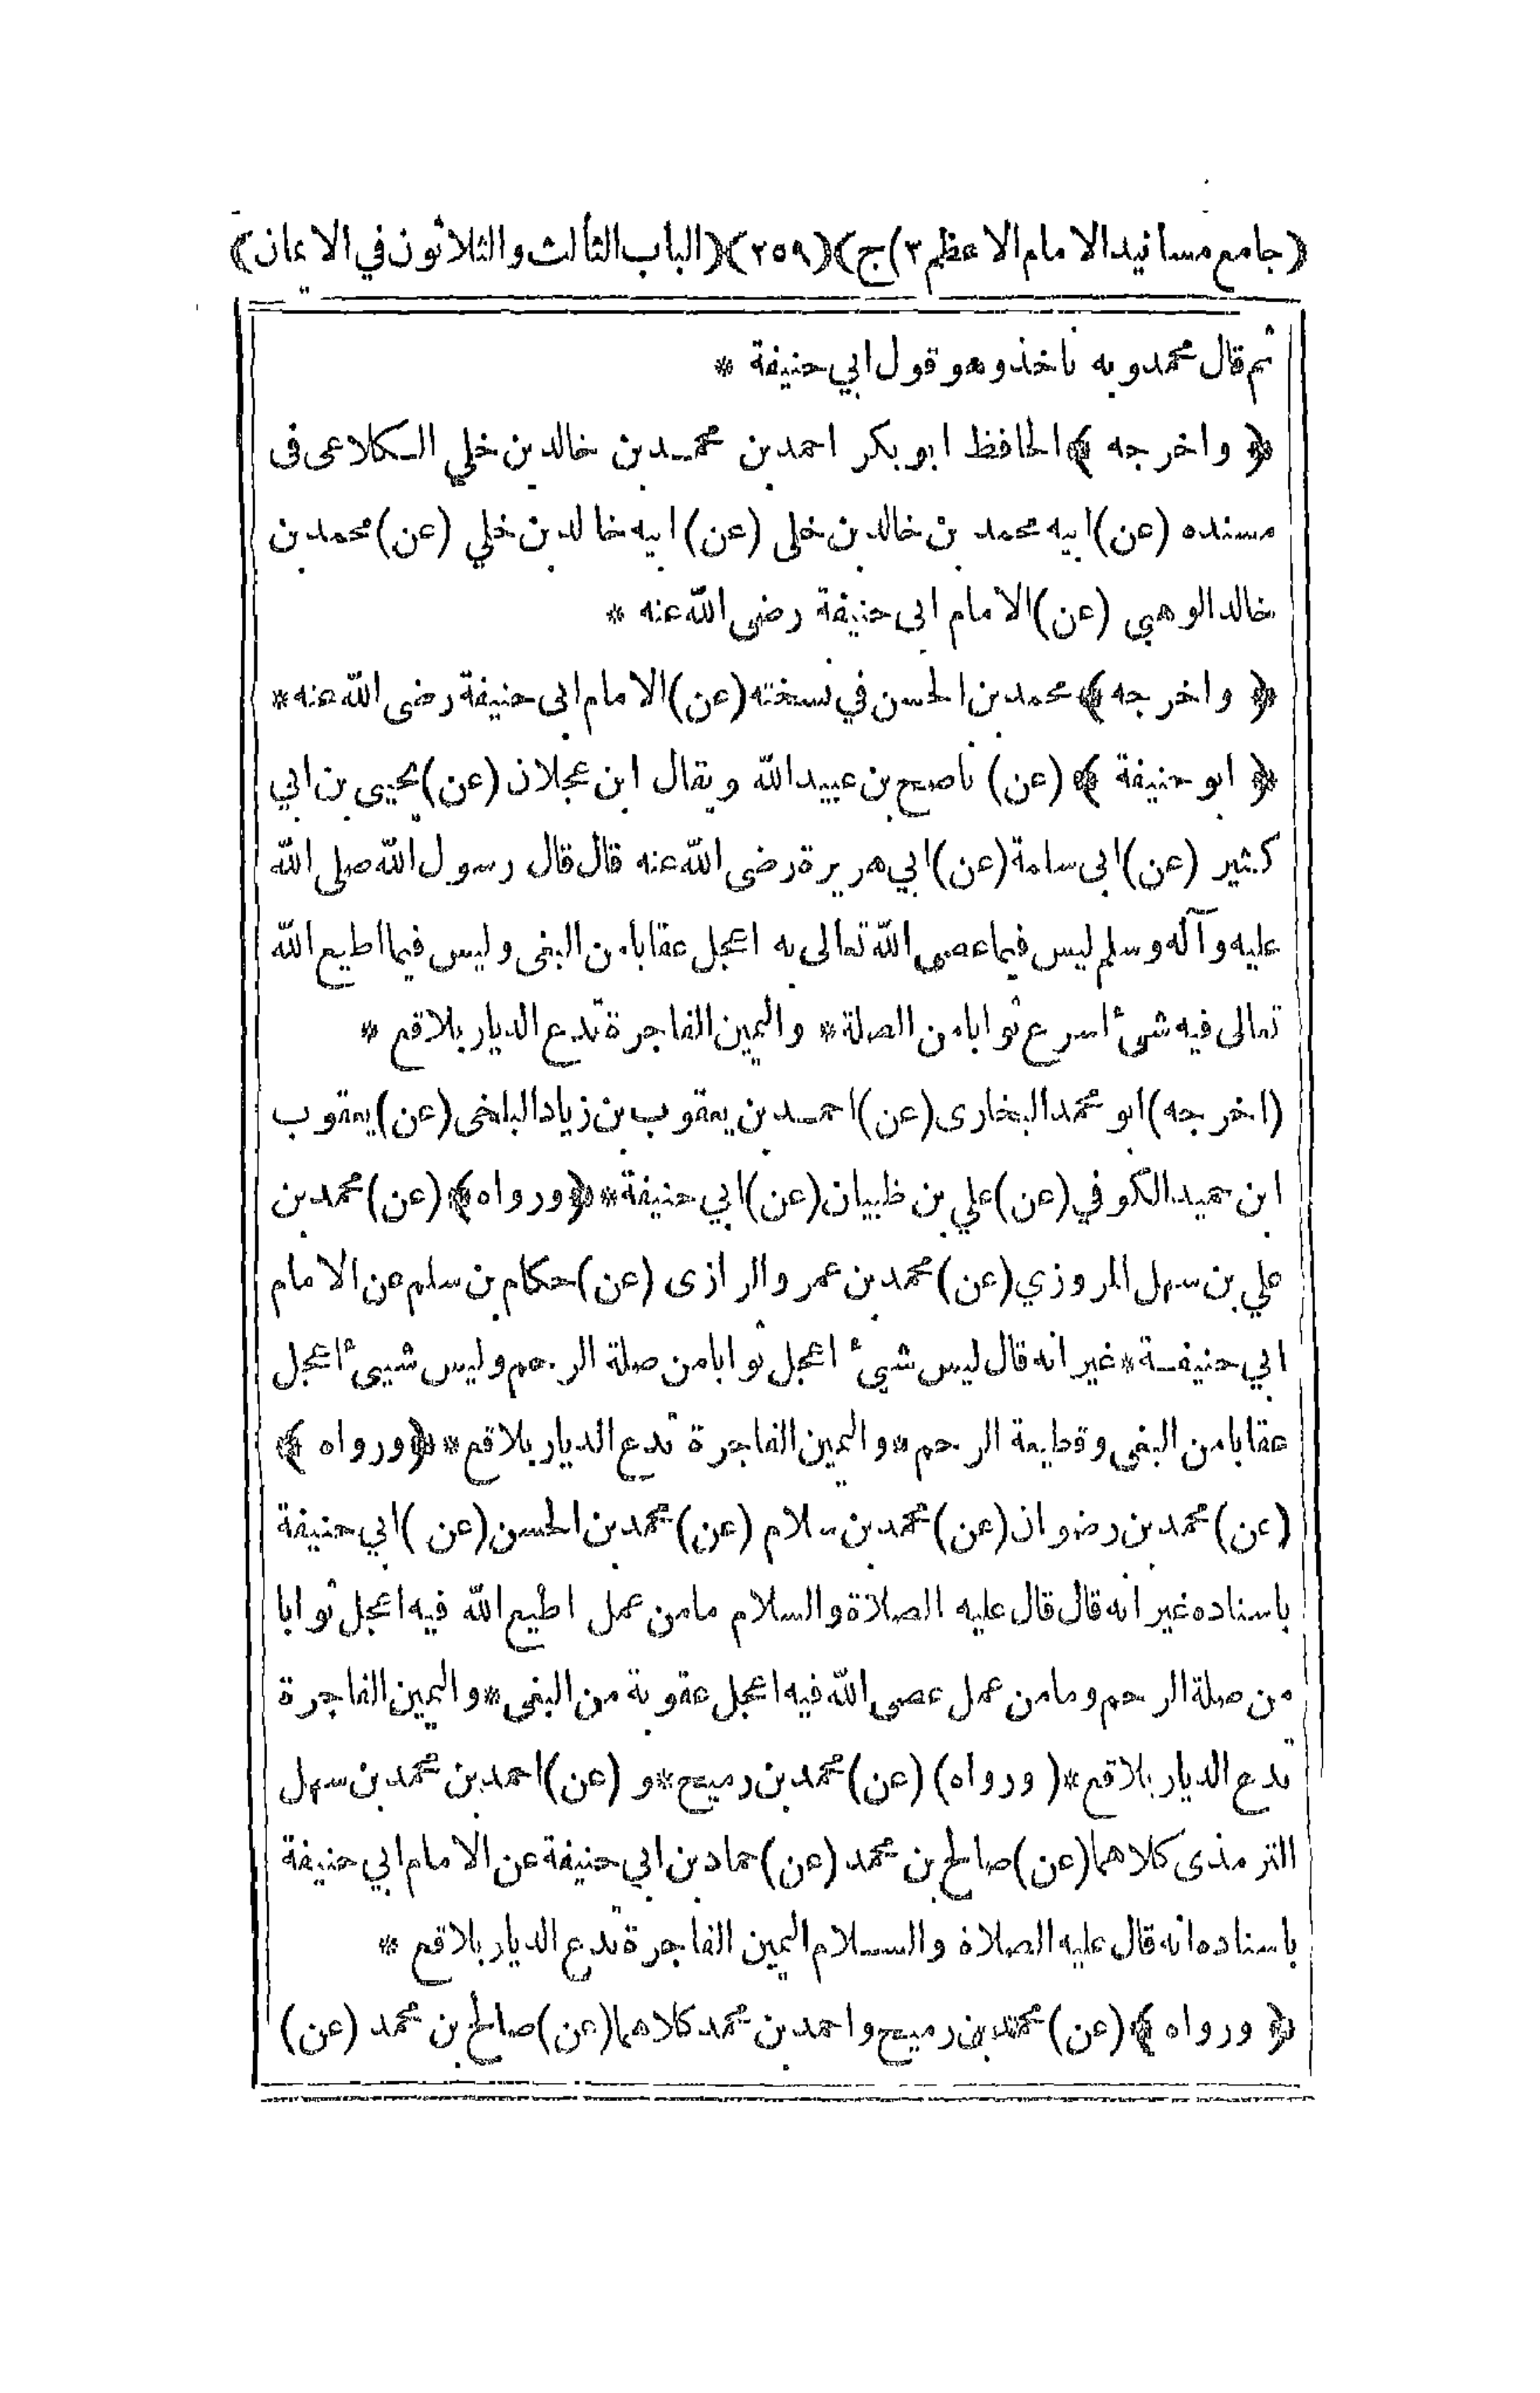 (جامع مسانيد الامام الاعظم ٣) ج) (٢٥٩) (الباب الثالث والثلاثون في الايمان)
ثم قال محمد وبه ناخذ وهو قول ابي حنيفة *
﴿ واخرجه ﴾ الحافظ ابو بكر احمد بن محمد بن خالد بن خلي الكلاعى فى
مسنده (عن) ابيه محمد بن خالد بن خلى (عن) ابيه خالد بن خلي (عن) محمد بن
خالد الوهبي (عن) الامام ابى حنيفة رضى الله عنه *
﴿ واخرجه ﴾ محمد بن الحسن في نسخته (عن) الامام ابى حنيفة رضى الله عنه *
﴿ ابو حنيفة ﴾ (عن) ناصح بن عبيد الله ويقال ابن عجلان (عن) يحيى بن ابي
كثير (عن) ابى سلمة (عن) ابي هريرة رضى الله عنه قال قال رسول الله صلى الله
عليه وآله وسلم ليس فيما عصى الله تعالى به اعجل عقابا من البغى وليس فيما اطيع الله
تعالى فيه شئ اسرع ثوابا من الصلة * واليمين الفاجرة تدع الديار بلاقع *
(اخرجه) ابو محمد البخارى (عن) احمد بن يعقوب بن زياد البلخى (عن) يعقوب
ابن حميد الكوفي (عن) علي بن ظبيان (عن) ابي حنيفة * ﴿ ورواه ﴾ (عن) محمد بن
علي بن سهل المروزي (عن) محمد بن عمرو الرازى (عن) حكام بن سلم عن الامام
ابي حنيفة * غير انه قال ليس شئ اعجل ثوابا من صلة الرحم وليس شيئ اعجل
عقابا من البغى وقطيعة الرحم * واليمين الفاجرة تدع الديار بلاقع * ﴿ ورواه ﴾
(عن) محمد بن رضوان (عن) محمد بن سلام (عن) محمد بن الحسن (عن) ابي حنيفة
باسناده غير انه قال قال عليه الصلاة والسلام ما من عمل اطيع الله فيه اعجل ثوابا
من صلة الرحم وما من عمل عصى الله فيه اعجل عقوبة من البغى * واليمين الفاجرة
تدع الديار بلاقع * (ورواه) (عن) محمد بن رميح * و (عن) احمد بن محمد بن سهل
الترمذى كلاهما (عن) صالح بن محمد (عن) حماد بن ابي حنيفة عن الامام ابي حنيفة
باسناده انه قال عليه الصلاة والسلام اليمين الفاجرة تدع الديار بلاقع *
﴿ ورواه ﴾ (عن) محمد بن رميح واحمد بن محمد كلاهما (عن) صالح بن محمد (عن)